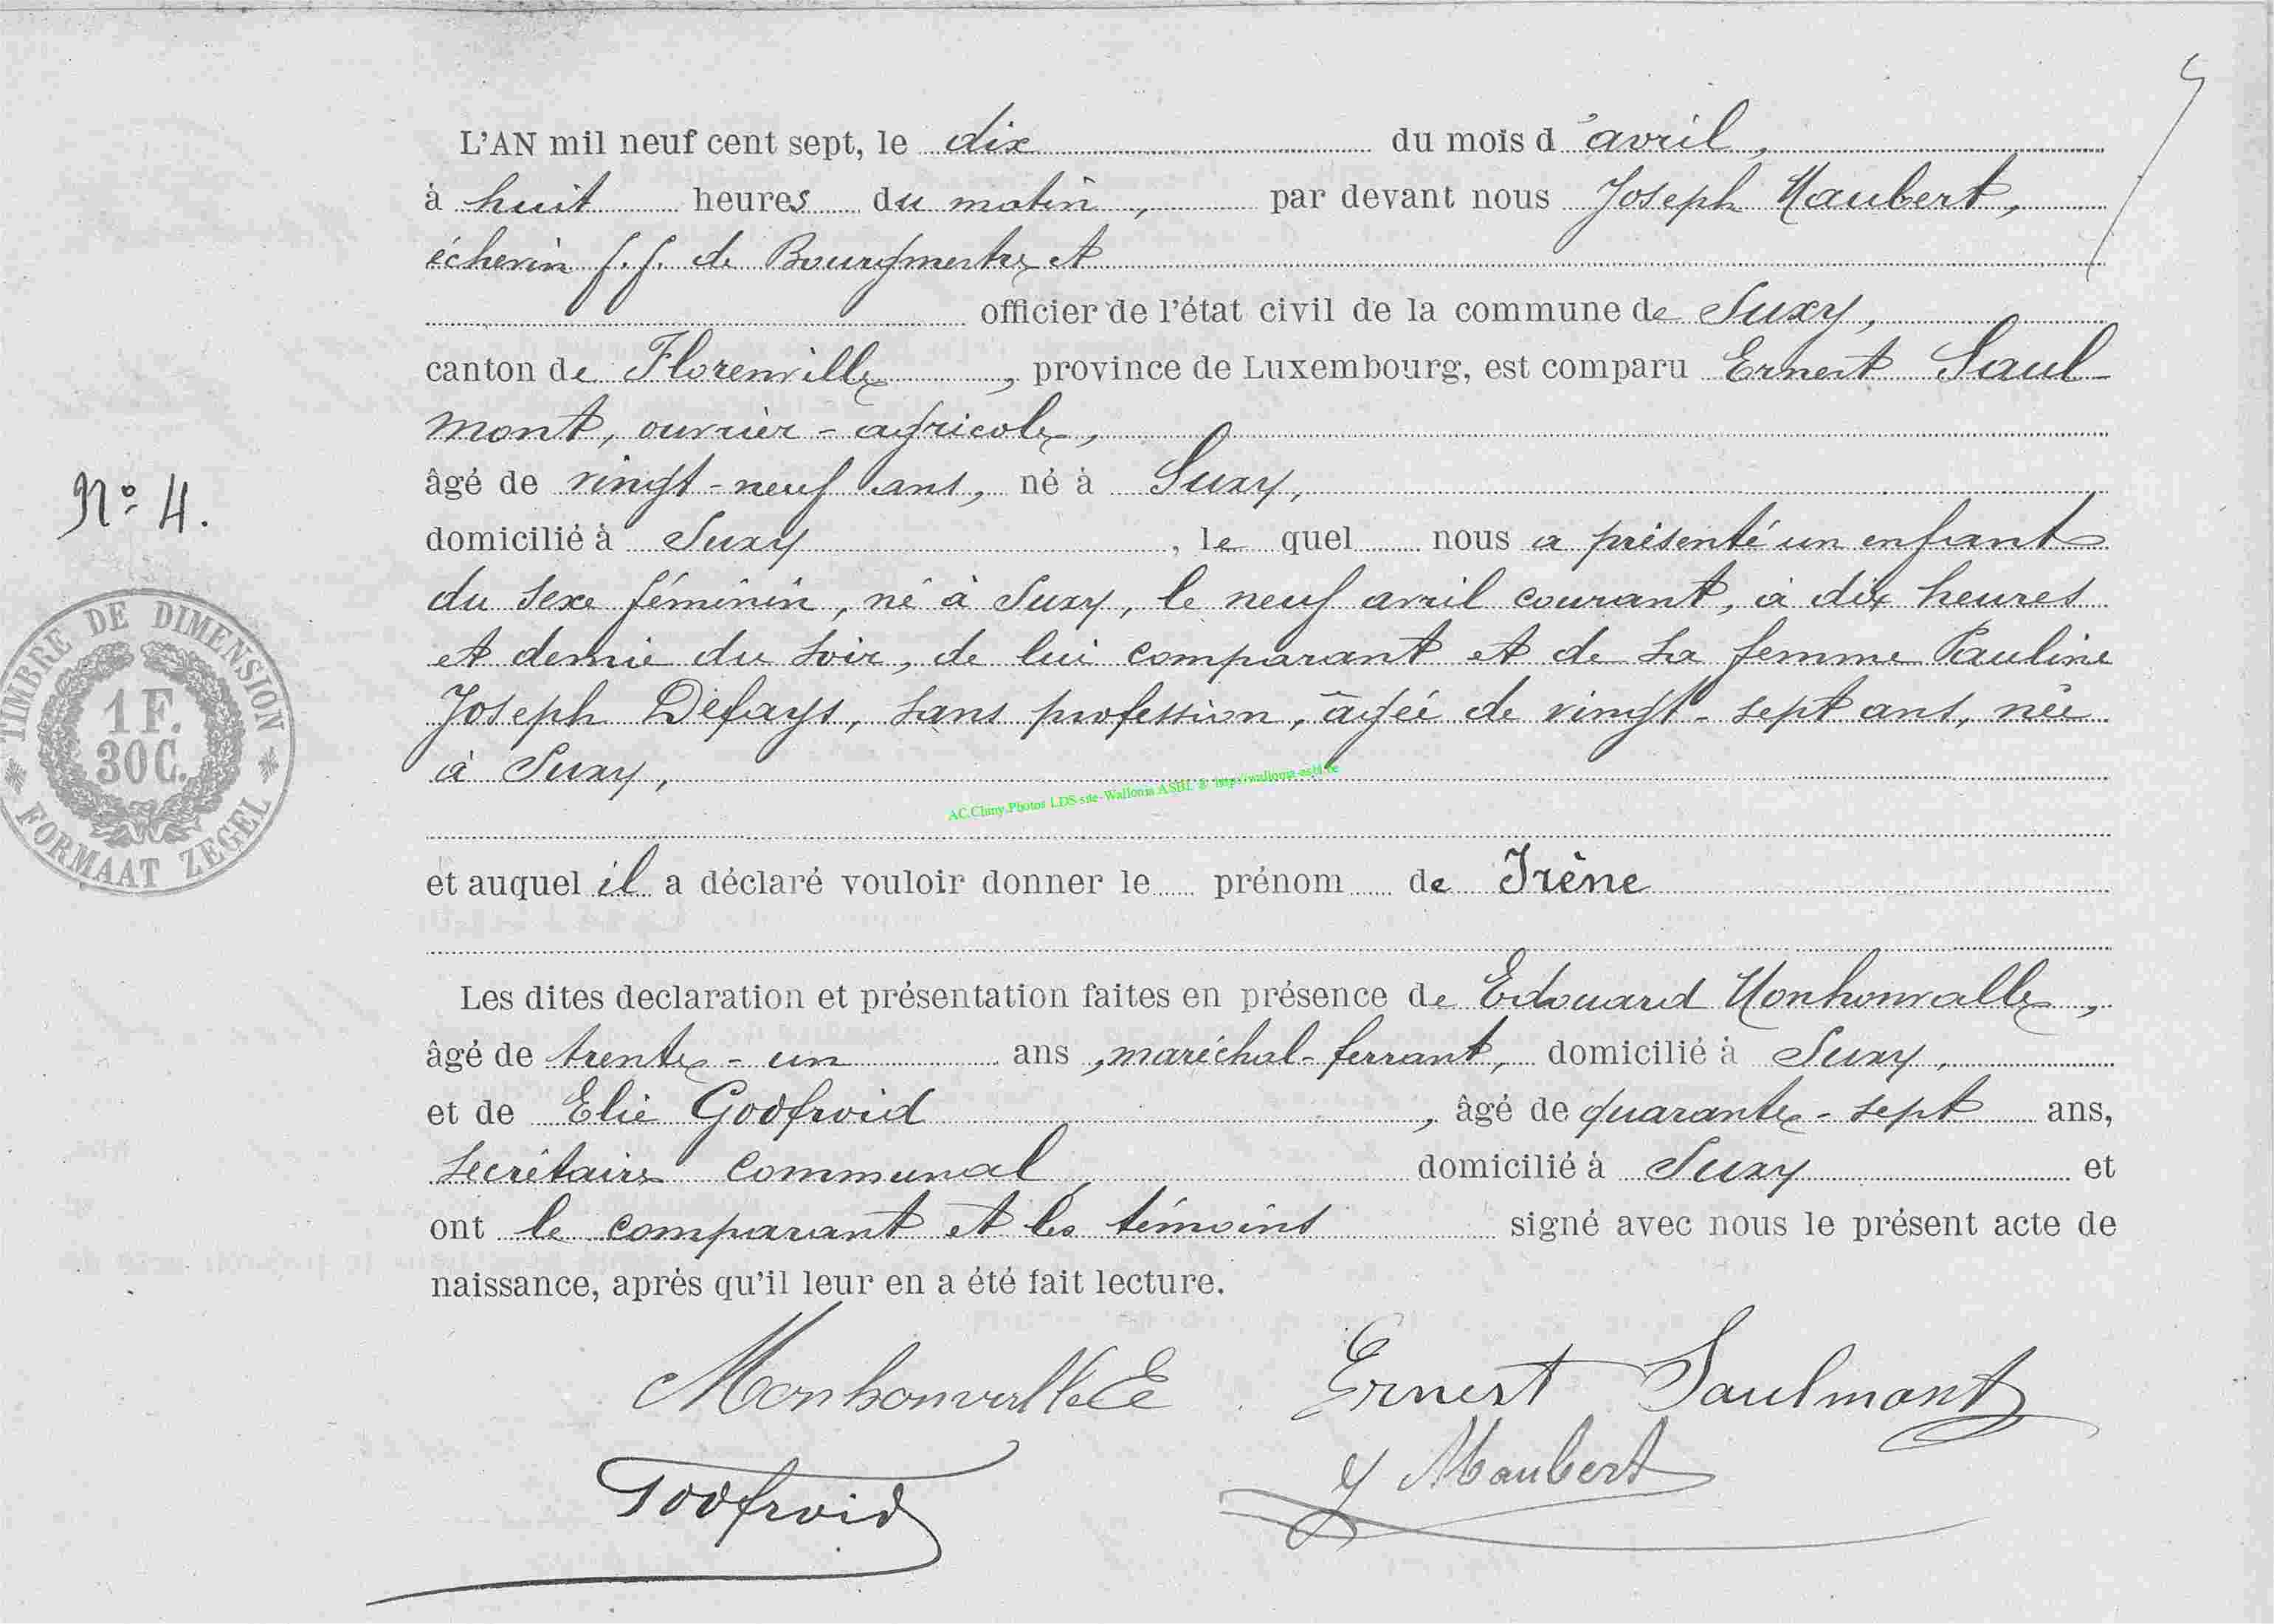 L'AN mil neuf cent sept, le dix du mois d'avril,
à huit heures du matin, par devant nous Joseph Maubert,
échevin f.f. de Bourgmestre et
officier de l'état civil de la commune de Suxy,
canton de Florenville, province de Luxembourg, est comparu Ernest Saul-
mont, ouvrier-agricole,
âgé de vingt-neuf ans, né à Suxy,
domicilié à Suxy, le quel nous a présenté un enfant
du sexe féminin, né à Suxy, le neuf avril courant, à dix heures
et demie du soir, de lui comparant et de sa femme Pauline
Joseph Defays, sans profession, âgée de vingt-sept ans, née
à Suxy,
et auquel il a déclaré vouloir donner le prénom de Irène
Les dites declaration et présentation faites en présence de Edouard Monhonvalle,
âgé de trente-un ans, maréchal-ferrant, domicilié à Suxy,
et de Elie Godfroid, âgé de quarante-sept ans,
secrétaire communal, domicilié à Suxy et
ont le comparant et les témoins signé avec nous le présent acte de
naissance, après qu'il leur en a été fait lecture.
Monhonvalle E Ernest Saulmont
J Maubert
Godfroid
N° 4.
TIMBRE DE DIMENSION
1 F.
30 C.
FORMAAT ZEGEL
AC.Chiny-Photos LDS site-Wallonia ASBL @ http://wallonia-asbl.be
5